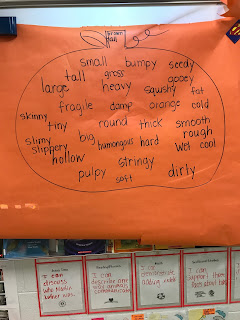 small bumpy seedy
tall gross gooey
large heavy squashy fat
fragile damp orange cold
skinny
tiny round thick smooth
slimy big humongous hard rough
slippery wet cool
hollow stringy
pulpy soft dirty
I can
discuss
who Martin
Luther was.
I can
describe
I can
demonstrate
adding
I can
support